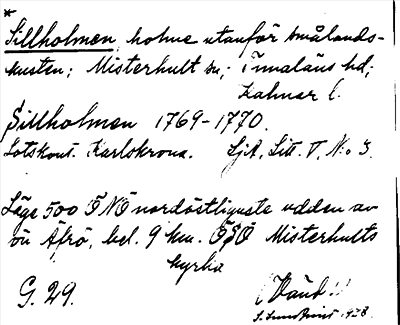 *
Sillholmen, holme utanför smålands-
kusten; Misterhult sn; Tunaläns hd;
Kalmar l.
Sillholmen 1769-1770.
Lotskont. Karlskrona. SjA, Litt. V, No 3.
Läge 500 ÖNÖ nordöstligaste udden av
ön Äfrö, bel. 9 km. ÖSÖ Misterhults
kyrka
G. 29.
(Vänd!)
1928.